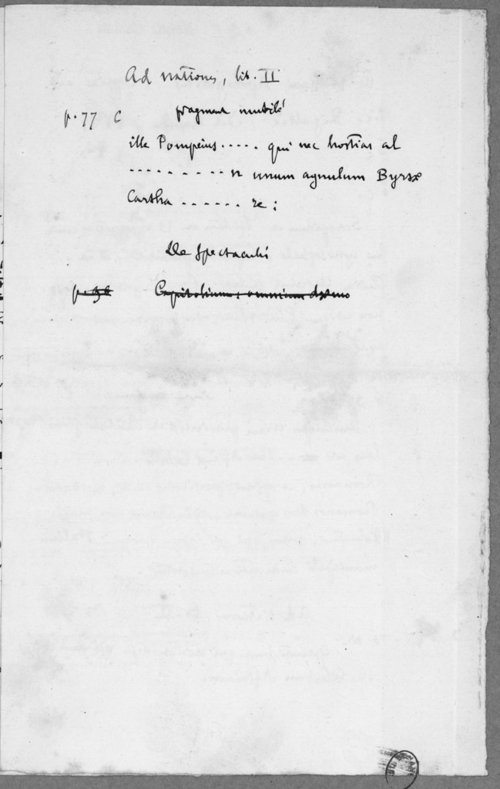 Ad nationes, lib. II
p. 77 C fragment mutilé
ille Pompeius ..... qui nec hostias al
.......... n unum agnulum Byrsæ
Cartha ...... re :
De Spectaculis
p. 92 Capitolium, omnium dæmo